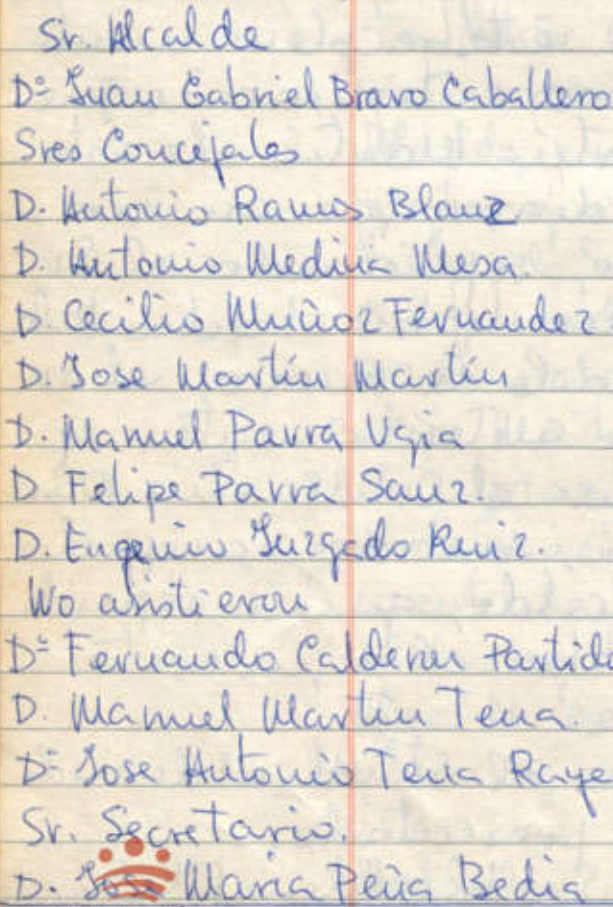 Sr. Alcalde
Dº Juan Gabriel Bravo Caballero
Sres Concejales
D. Antonio Ramos Blanz
D. Antonio Medina Mesa.
D. Cecilio Muñoz Fernandez
D. Jose Martín Martín
D. Manuel Parra Ugia
D. Felipe Parra Sanz.
D. Eugenio Juzgado Ruiz.
No asistieron
Dº Fernando Calderon Partido
D. Manuel Martin Tena.
Dº Jose Antonio Tena Raye
Sr. Secretario.
D. Jose Maria Peña Bedia